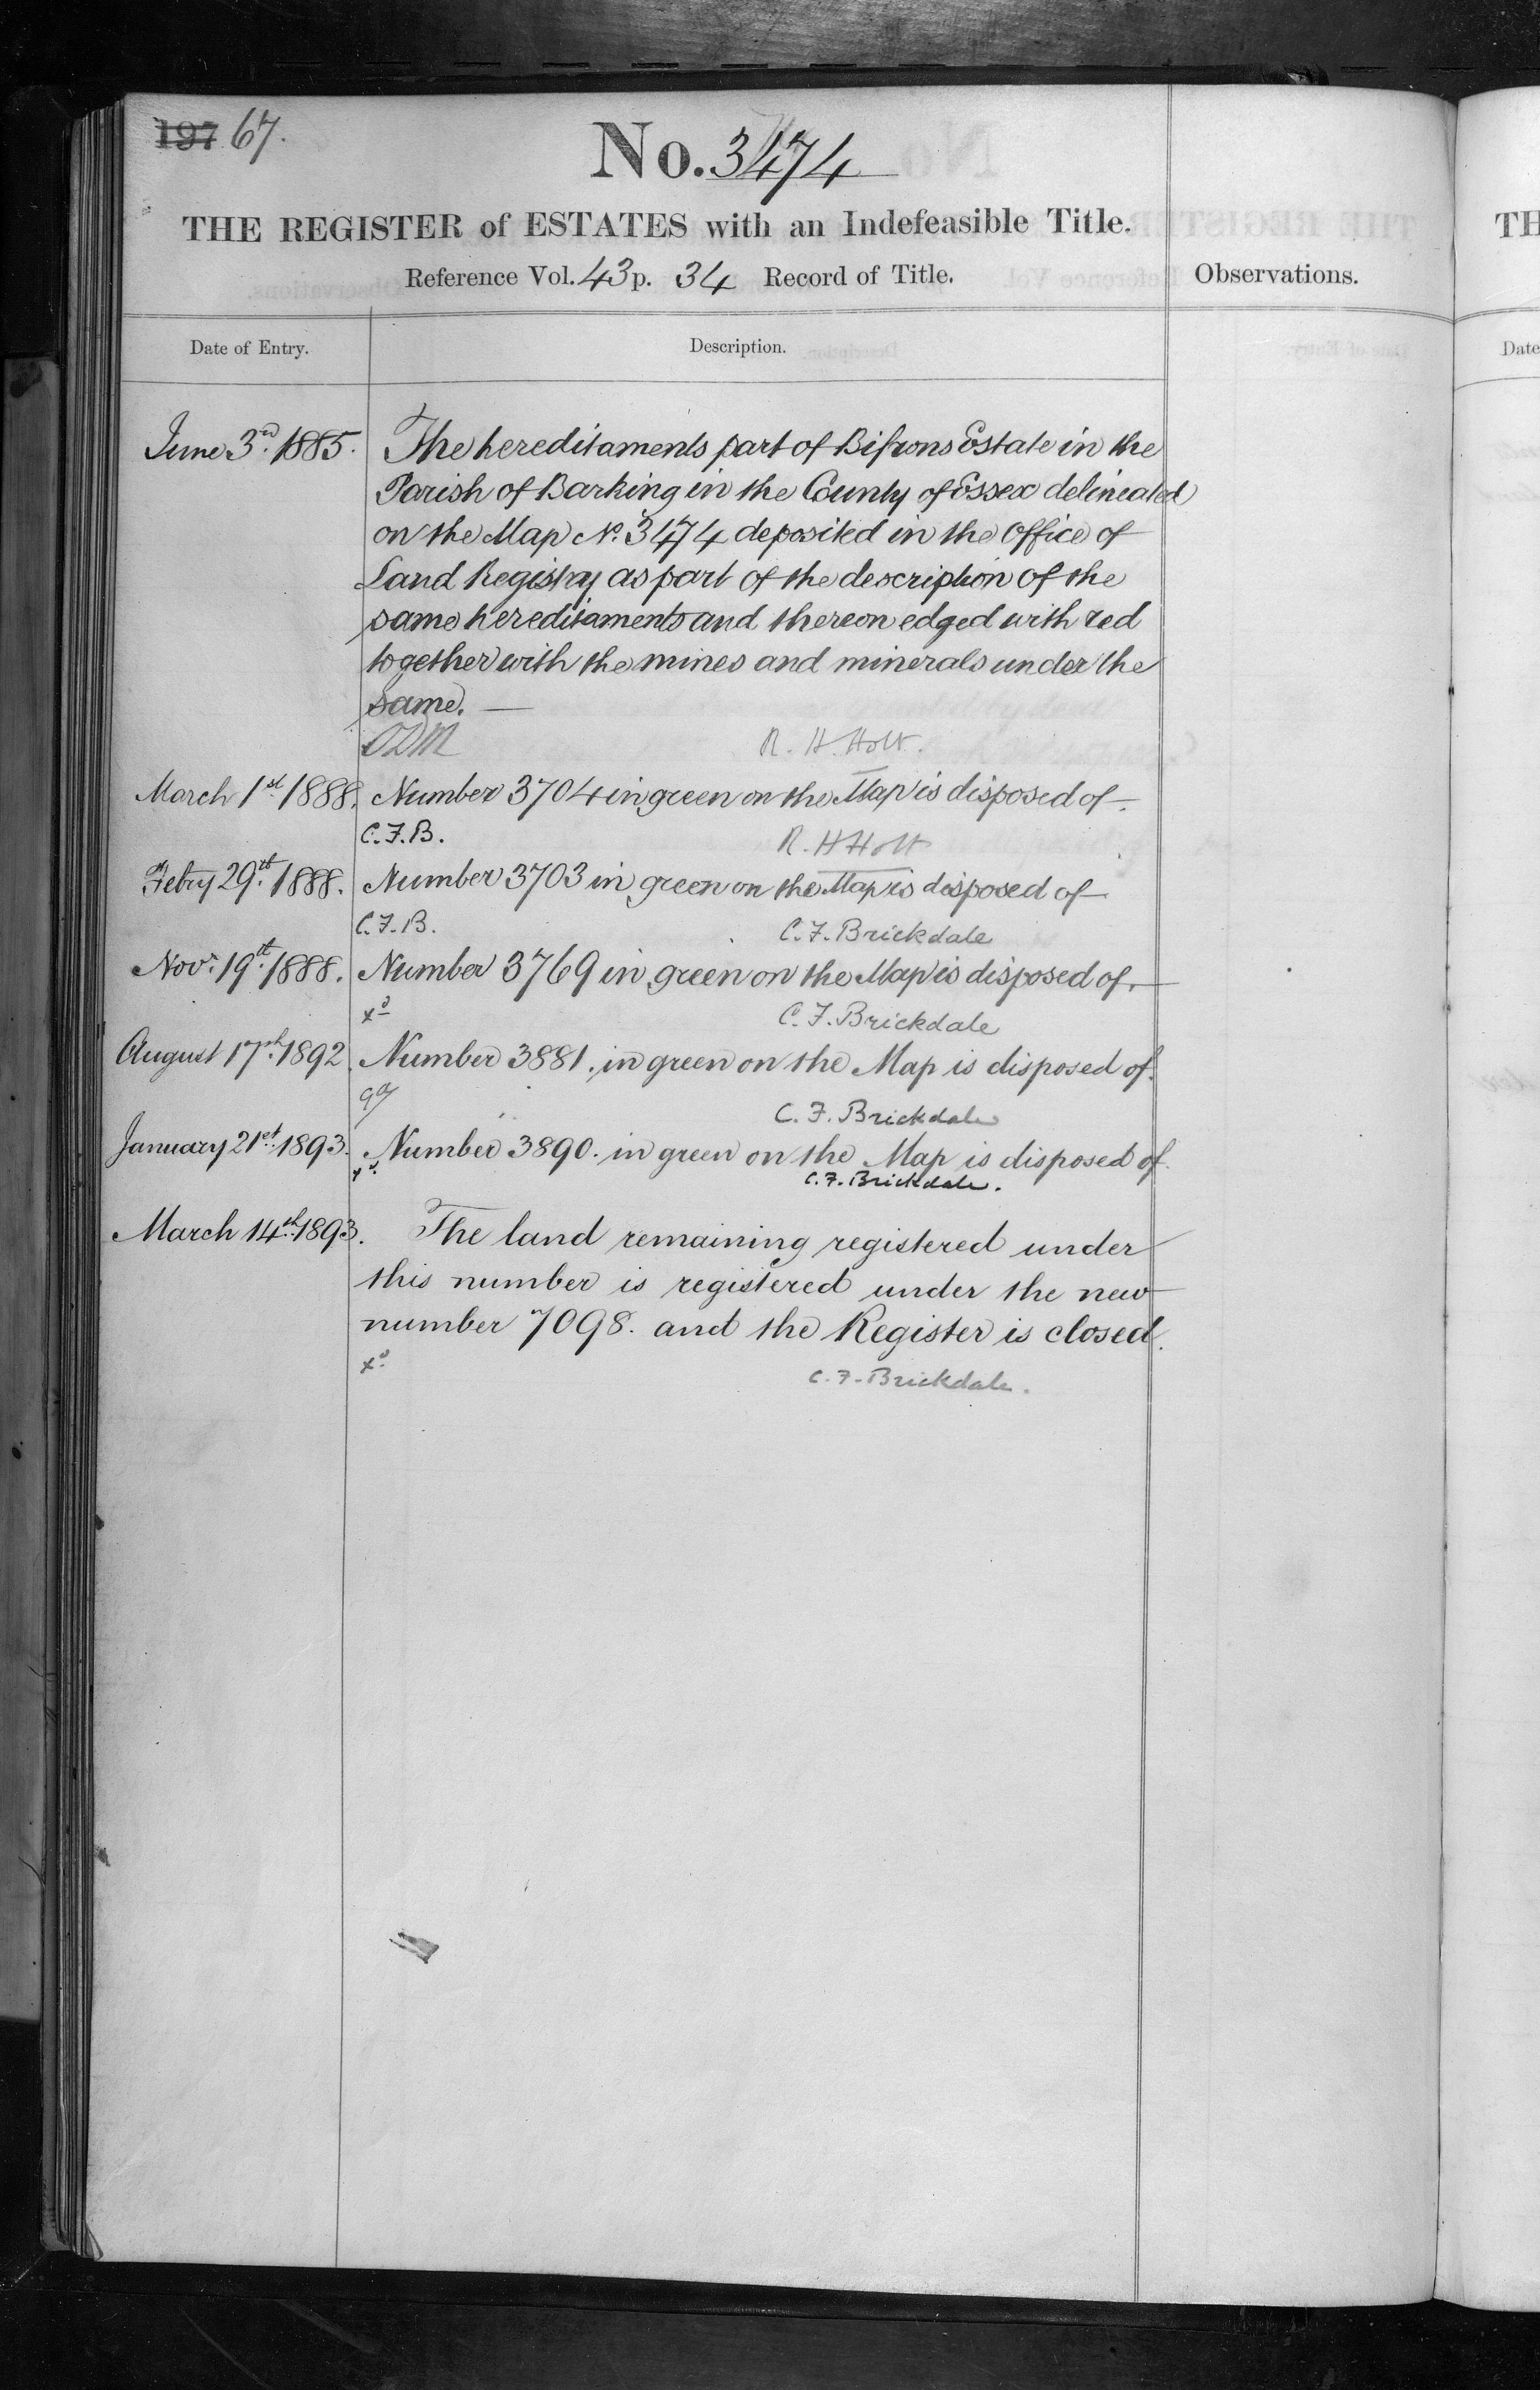 197 67.
No. 3474
THE REGISTER of ESTATES with an Indefeasible Title.
Reference Vol. 43 p. 34 Record of Title.
Observations.
Date of Entry.
Description.
June 3rd. 1885. The hereditaments part of Bifrons Estate in the
Parish of Barking in the County of Essex delineated
on the Map No. 3474 deposited in the Office of
Land Registry as part of the description of the
same hereditaments and thereon edged with red
together with the mines and minerals under the
same. —
ODM R. H. Holt.
March 1st. 1888. Number 3704 in green on the Map is disposed of.
C.F.B. R. H Holt
Febry 29th. 1888. Number 3703 in green on the Map is disposed of
C.F.B. C. F. Brickdale
Novr. 19th. 1888. Number 3769 in green on the Map is disposed of. —
C. F. Brickdale
August 17th. 1892. Number 3881. in green on the Map is disposed of.
C. F. Brickdale
January 21st. 1893. Number 3890. in green on the Map is disposed of.
C. F. Brickdale.
March 14th. 1893. The land remaining registered under
this number is registered under the new
number 7098. and the Register is closed.
C. F. Brickdale.
TH
Date